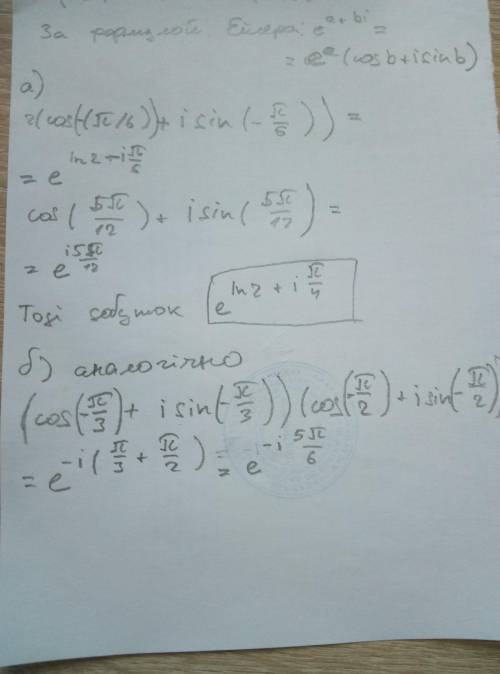 За формулой Ейлера: e^{a+bi} =
= e^a (cos b + i sin b)
а)
2(cos(-(π/6)) + i sin(-π/6)) =
= e^{ln2 - iπ/6}
cos(5π/12) + i sin(5π/12) =
= e^{i5π/12}
Тоді добуток e^{ln2 + iπ/4}
б) аналогічно
(cos(-π/3) + i sin(-π/3))(cos(-π/2) + i sin(-π/2))
= e^{-i(π/3 + π/2)} = e^{-i5π/6}